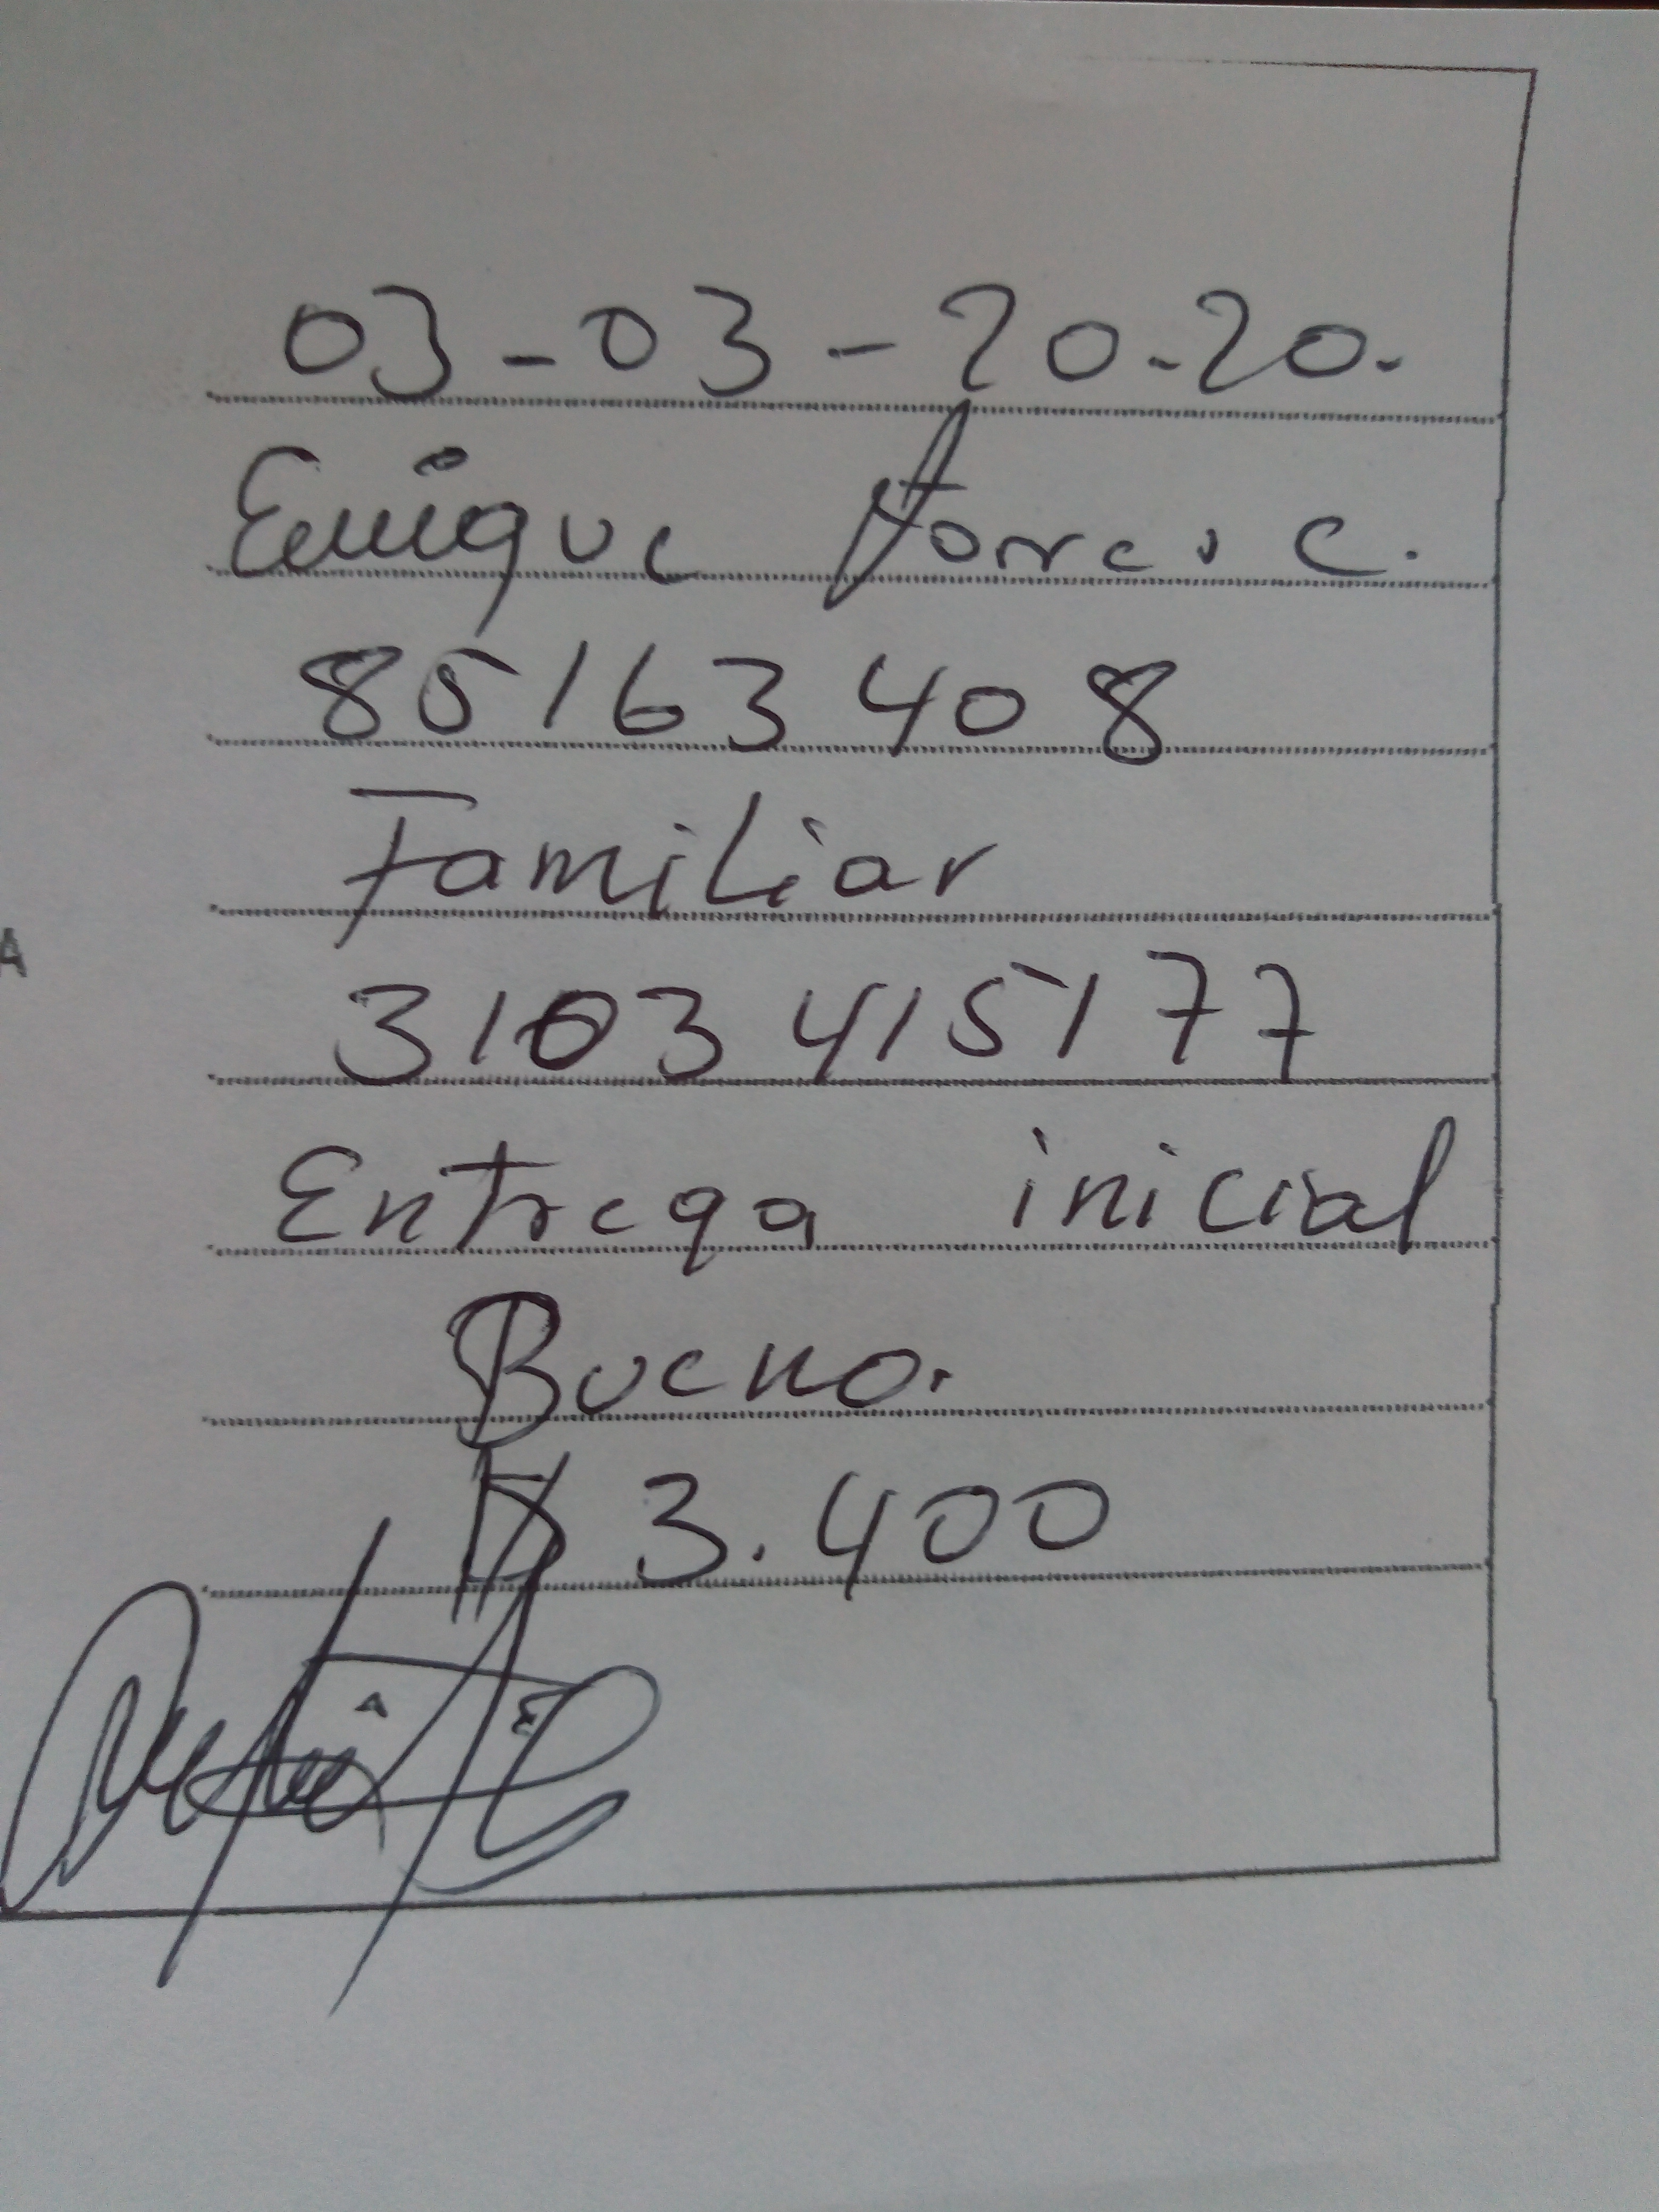 03-03-20-20.
Enrique Torres C.
85163408
Familiar
A
3103415177
Entrega inicial
Bueno.
$ 3.400